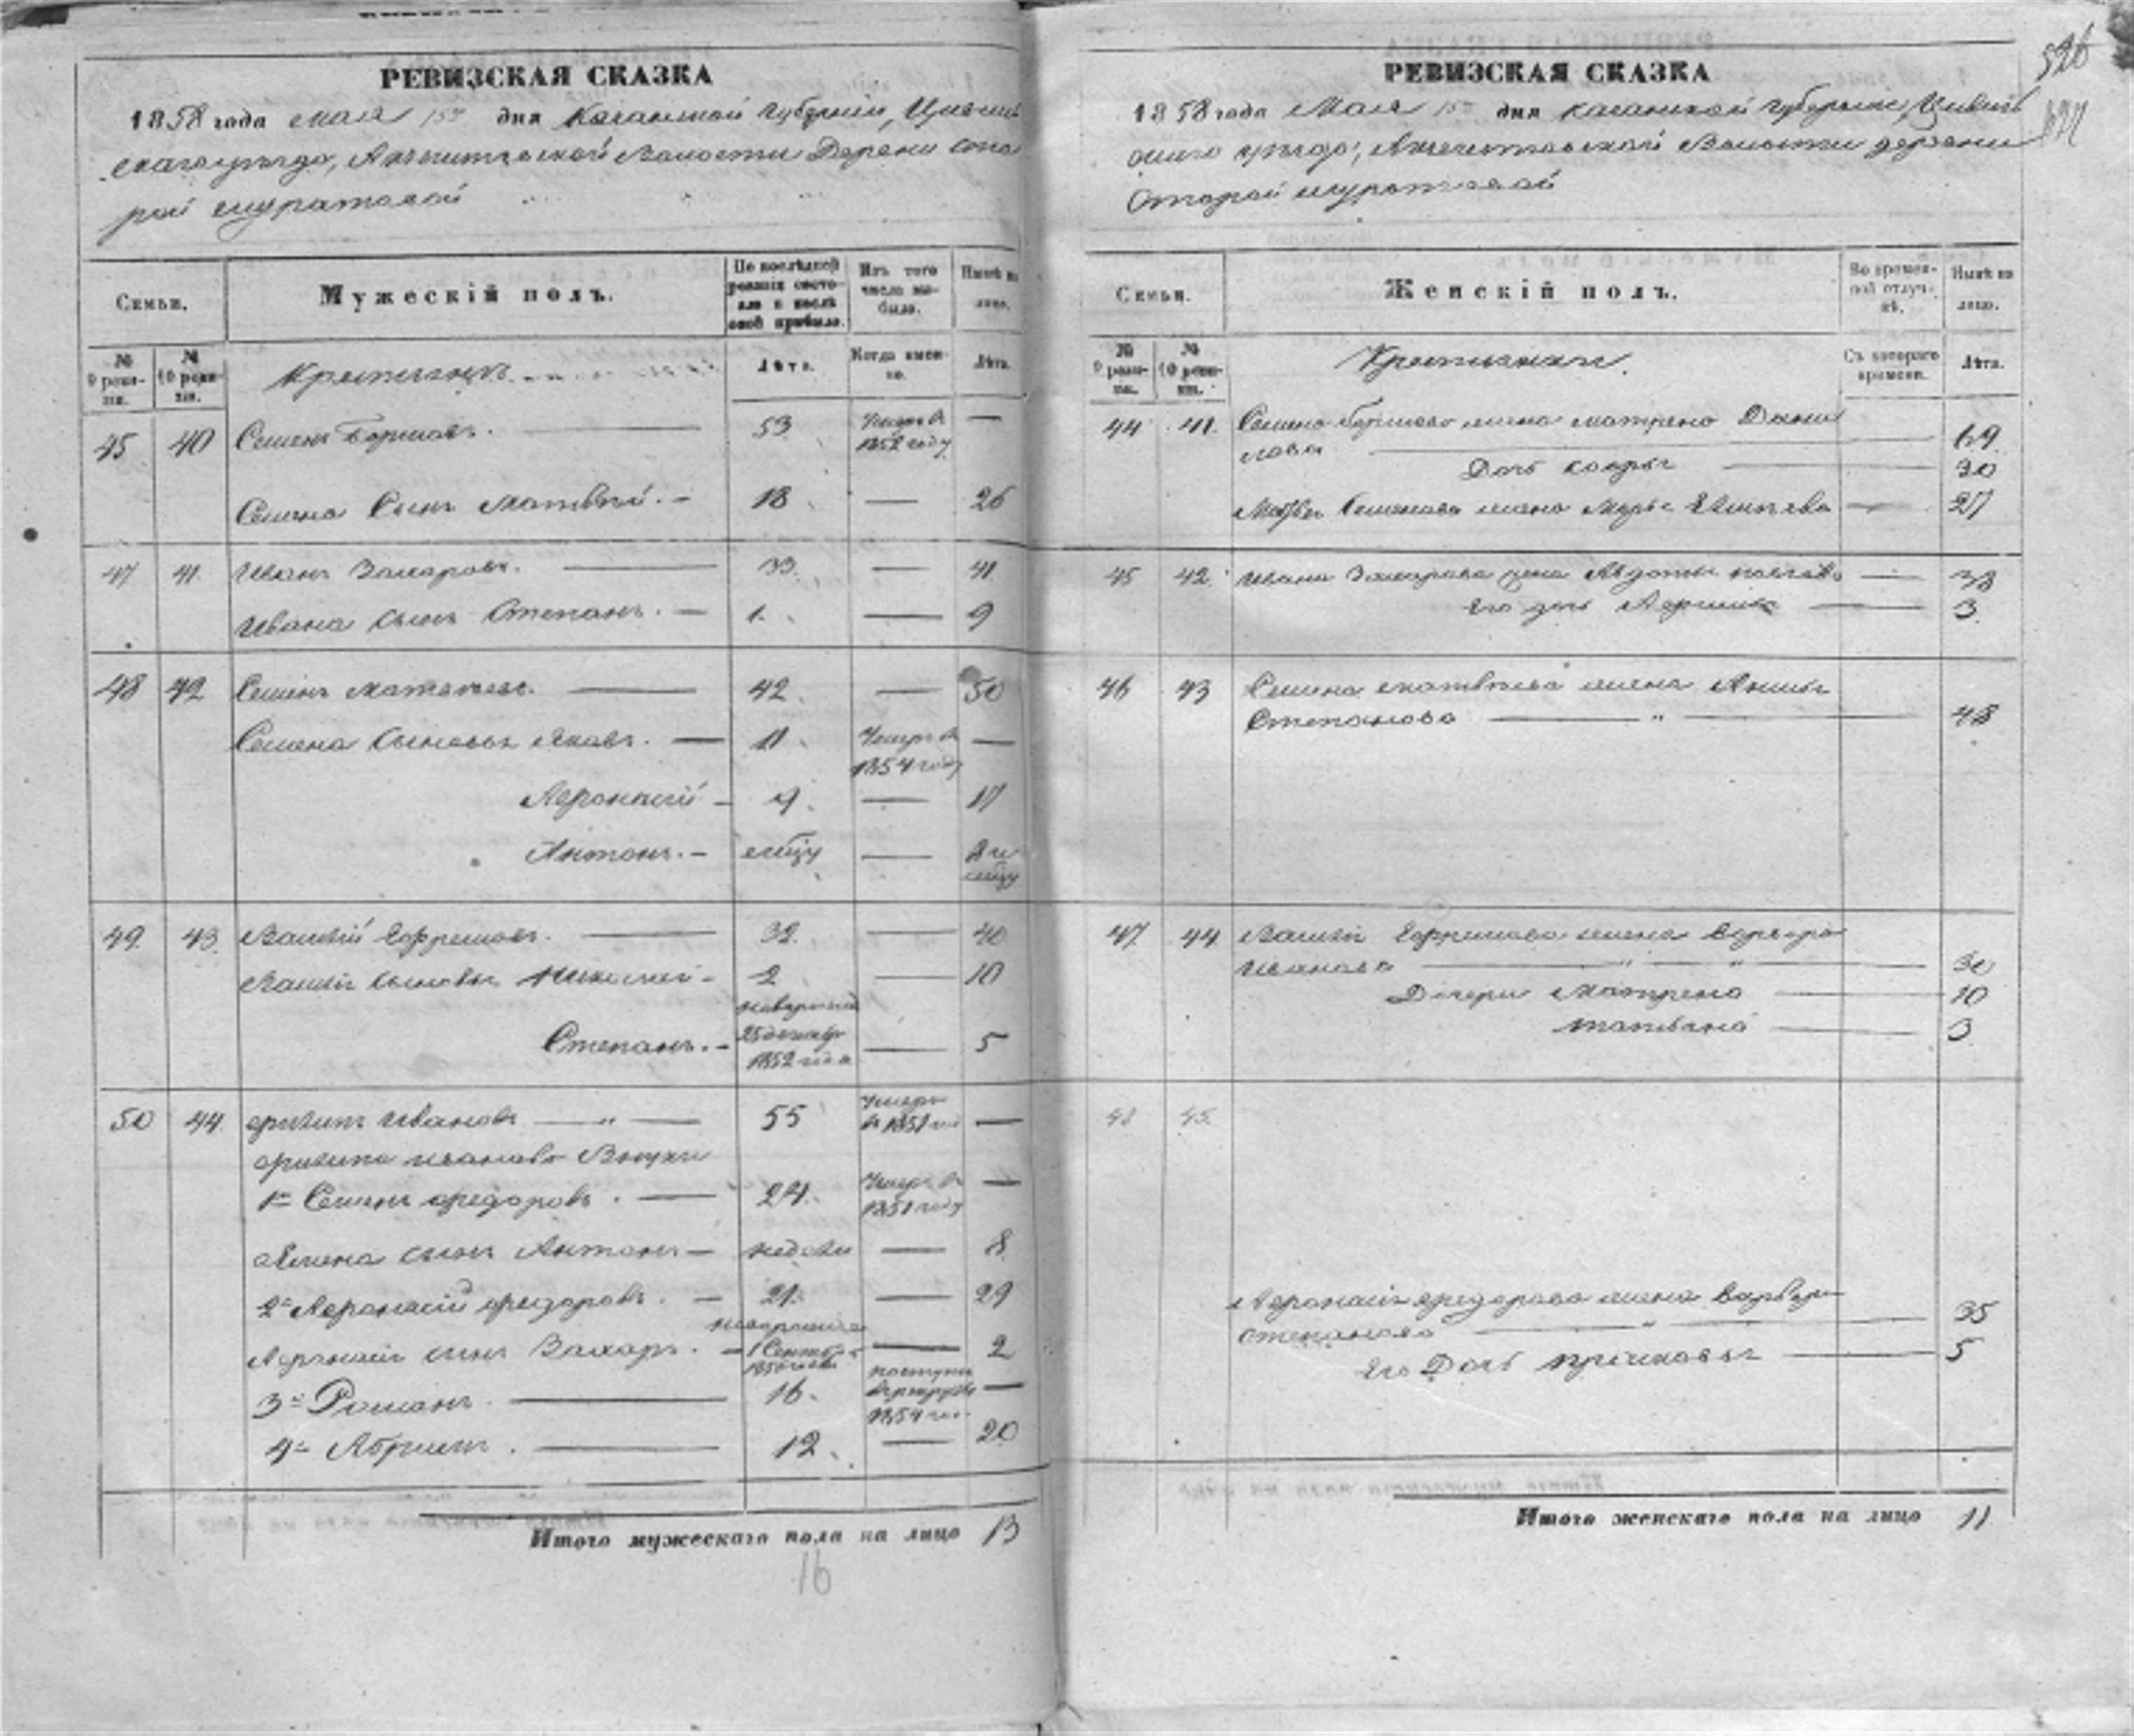 РЕВИЗСКАЯ СКАЗКА
1858 года мая 15го дня Казанской губернии, Цивиль
скаго уезда, Волости Деревни Ста
рой Муратовой
Семьи.
Мужескій полъ.
По послѣдней ревизіи состояло и послѣ оной прибыло.
Изъ того числа выбыло.
Нынѣ на лицо.
№ 9 ревизіи.
№ 10 ревизіи.
Крестьянъ
Лѣта.
Когда именно.
Лѣта.
45 40 Семенъ 53 Умеръ в 1852 году —
Семена Сынъ Матвѣй. — 18 — 26
47 41. Иванъ Захаровъ. — 33. — 41
Ивана сынъ Степанъ. — 1. — 9
48 42 Семенъ Матвѣевъ. — 42. — 50
Семена Сыновья Яковъ. — 11. Умеръ в 1854 году —
Афонасий — 9. — 17
Антонъ. — мсцу — 8 и мсцу
49. 43. Василий Ефремовъ. — 32. — 40
Василия сыновья Николай — 2 — 10
Степанъ. — новорожден 25 декабр 1852 года — 5
50 44. Филипъ Ивановъ — " — 55 Умеръ в 1851 го —
Филипа Иванова Внуки
1й Семенъ Федоровъ. — 24. Умеръ в 1851 году —
Семена сынъ Антонъ — недели — 8.
2й Афонасий Федоровъ. — 21. — 29
Афонасия сынъ Захаръ. — новорожден 1 Сентября — 2
3й Романъ — 16. поступил в рекруты 1854 го. —
4й Абрамъ. — 12. — 20
Итого мужескаго пола на лицо 13
16
РЕВИЗСКАЯ СКАЗКА
526
1858 года Мая 15го дня Казанской губернии, Цивиль
скаго уезда, Волости деревни
Старой Муратовой
Семьи.
Женскій полъ.
Во временной отлучкѣ.
Нынѣ на лицо.
№ 9 ревизіи.
№ 10 ревизіи.
Крестьянки.
Съ котораго времени.
Лѣта.
44 41. Семена жена Матрена Дани
лова — 69.
Дочь — 30
Матвея Семенова жена Марья — 27
45 42. Ивана Захарова жена Авдотья — 38
Его дочь — 3.
46 43 Семена Матвеева жена Анна
Степанова — " — 48
47. 44 Василия Ефремова жена Варвара
Иванова — " — " — 30
Дочери Матрена — 10
Татьяна — 3
48 45.
Афонасия Федорова жена Варвара
Степанова — " — 35
Его Дочь — 5
Итого женскаго пола на лицо 11